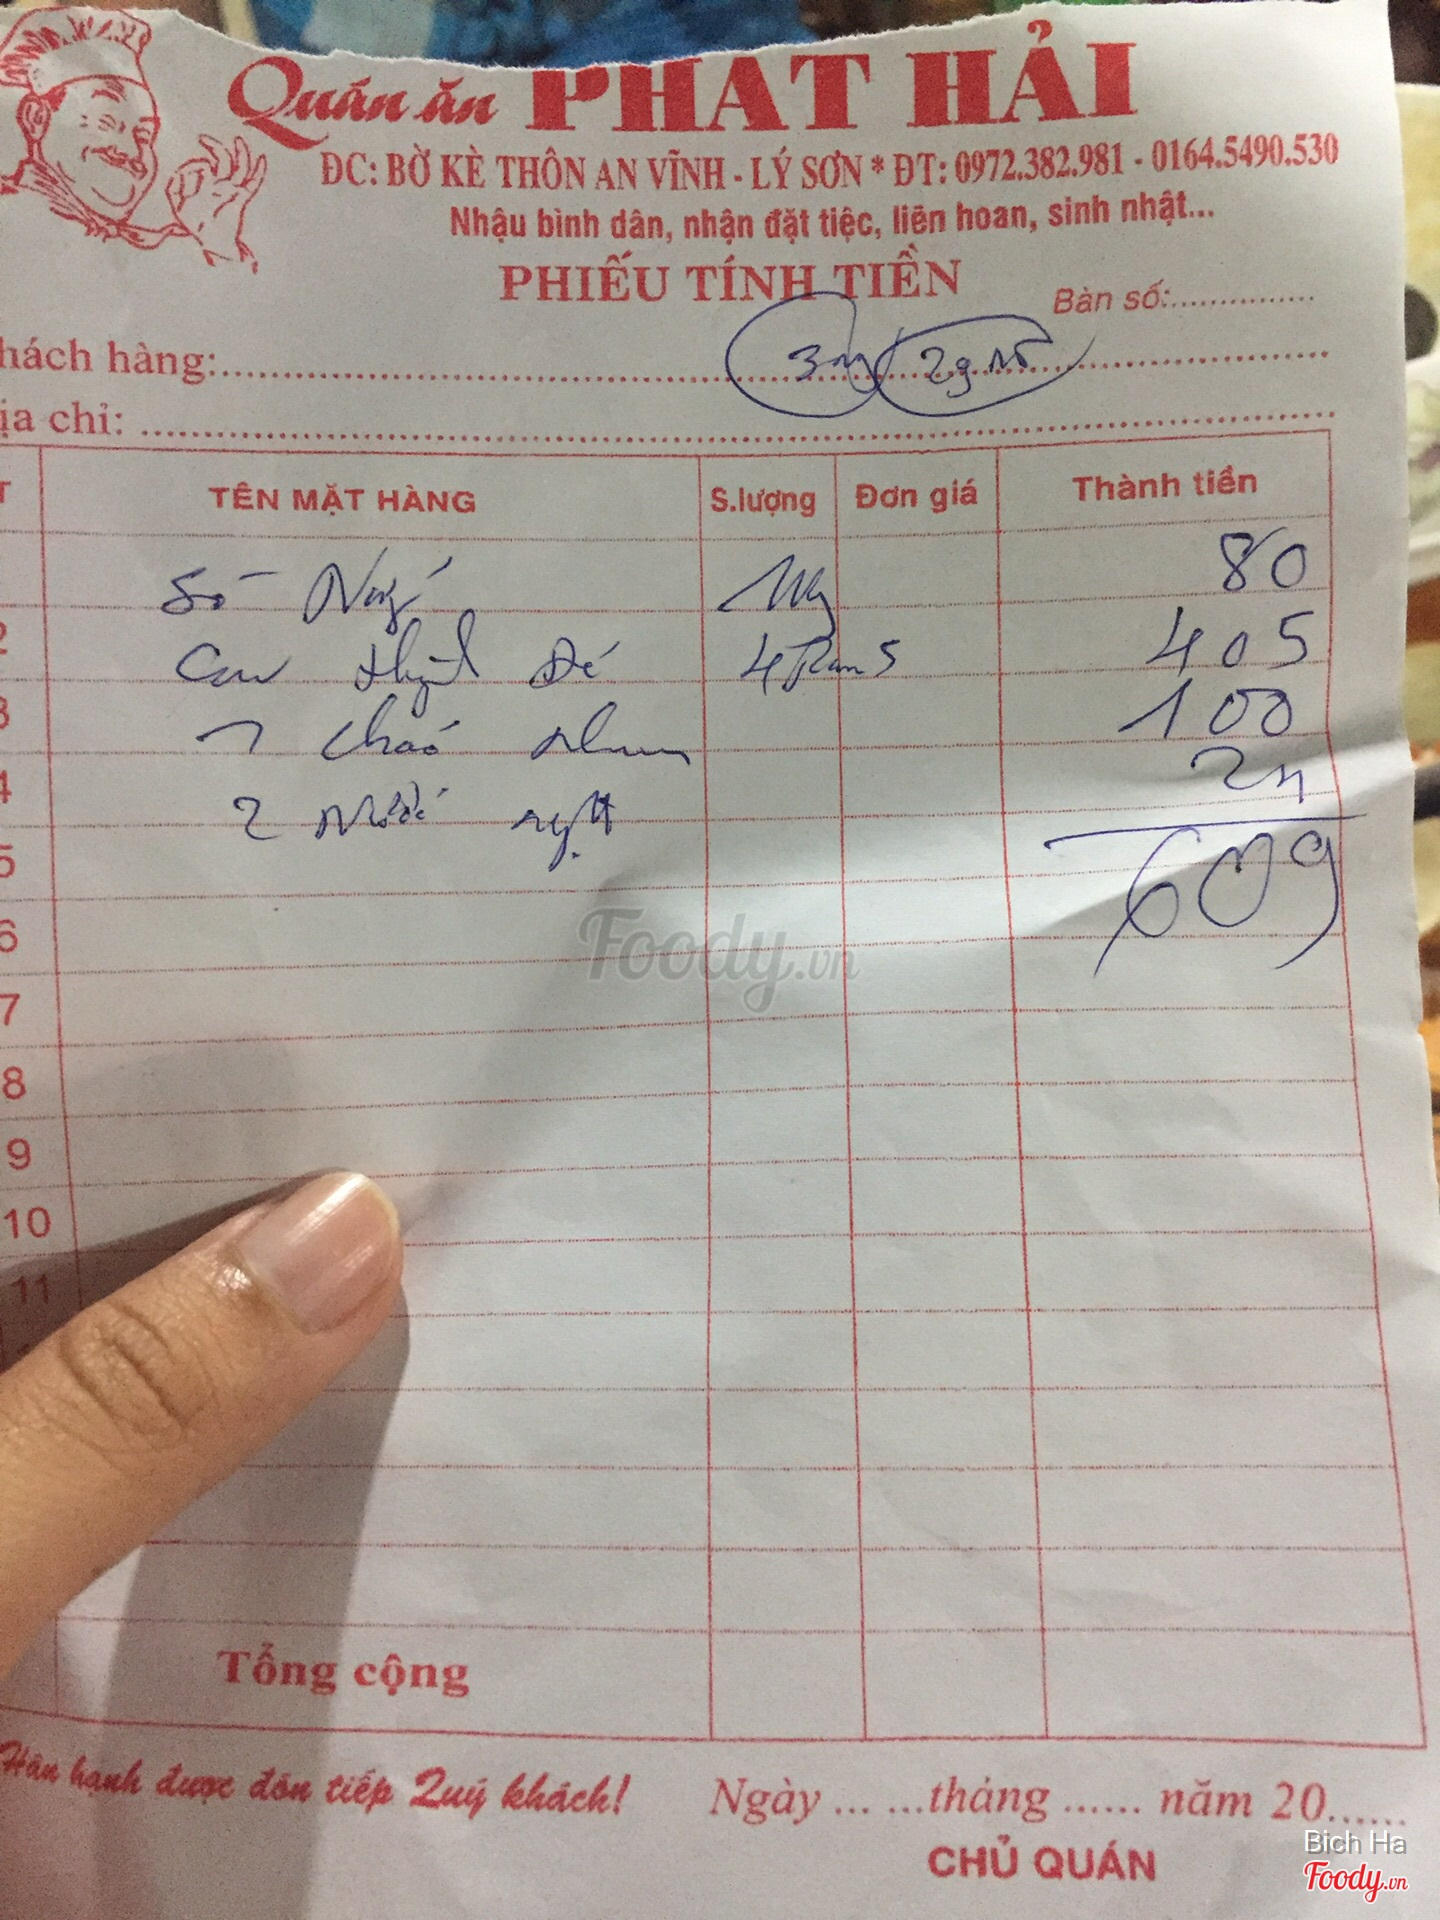 Quán ăn PHAT HẢI
ĐC: BỜ KÈ THÔN AN VĨNH - LÝ SƠN * ĐT: 0972.382.981 - 0164.5490.530
Nhậu bình dân, nhận đặt tiệc, liên hoan, sinh nhật...
PHIẾU TÍNH TIỀN
Bàn số:
hách hàng:
ịa chỉ:
T TÊN MẶT HÀNG S.lượng Đơn giá Thành tiền
80
2 Đế 405
3 1 cháo nhum 100
4 2 nước ngọt 24
5 609
6
7
8
9
10
11
Foody.vn
Tổng cộng
Hân hạnh được đón tiếp Quý khách!
Ngày ... ...tháng ...... năm 20......
CHỦ QUÁN
Bich Ha
Foody.vn